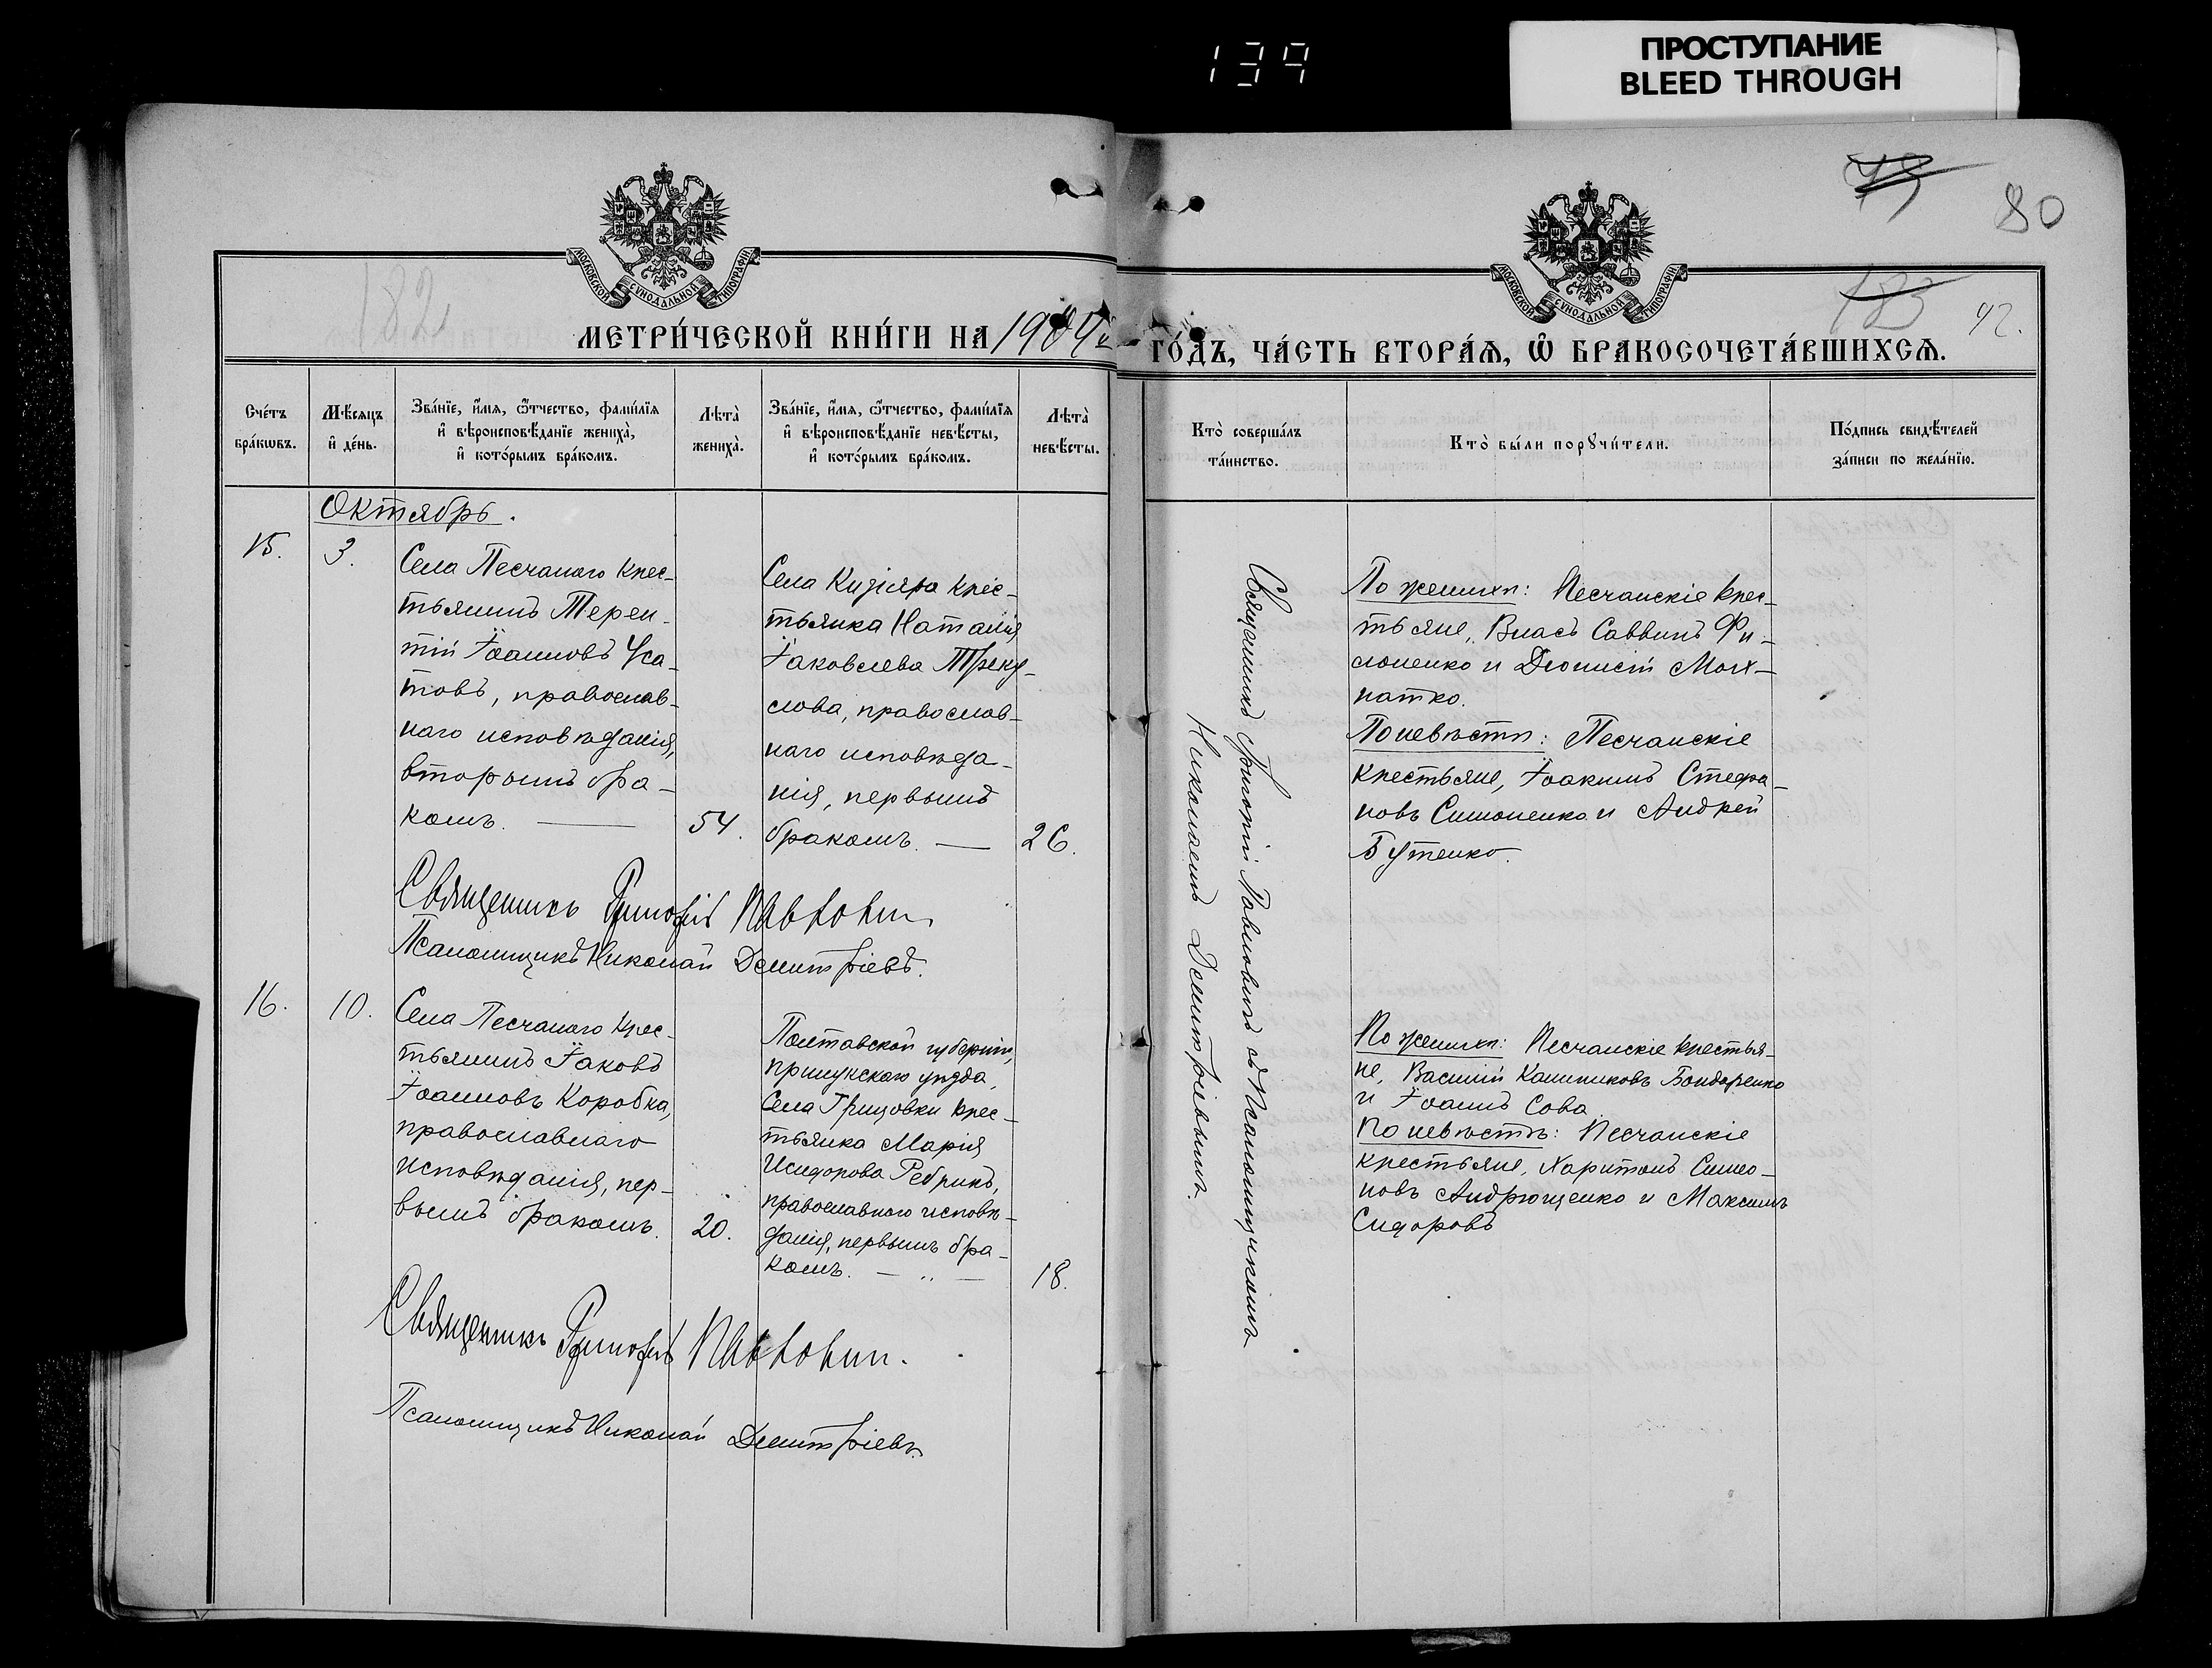 134
ПРОСТУПАНИЕ
BLEED THROUGH
73
80
182
183
42.
МОСКОВСКОЙ СѴНОДАЛЬНОЙ ТИПОГРАФІИ
МОСКОВСКОЙ СѴНОДАЛЬНОЙ ТИПОГРАФІИ
МЕТРИ́ЧЕСКОЙ КНИ́ГИ НА 1904й
ГО́ДЪ, ЧА́СТЬ ВТОРА́Ѧ, Ѽ БРАКОСОЧЕТА́ВШИХСѦ.
Сче́тъ бра́кѡвъ.
Мѣ́сяцъ и҆ де́нь.
Зва́нїе, и҆́мя, ѻ҆́тчество, фами́лїя
и҆ вѣроисповѣ́данїе жениха̀,
и҆ кото́рымъ бра́комъ.
Лѣта̀ жениха̀.
Зва́нїе, и҆́мя, ѻ҆́тчество, фами́лїя
и҆ вѣроисповѣ́данїе невѣ́сты,
и҆ кото́рымъ бра́комъ.
Лѣта̀ невѣ́сты.
Кто̀ соверша́лъ
та́инство.
Кто̀ бы́ли порꙋчи́тели.
По́дпись свидѣ́телей
за́писи по жела́нїю.
Октябрь.
15.
3.
Села Песчанаго крес-
тьянинъ Терен-
тій Іоанновъ Уса-
товъ, православ-
наго исповѣданія,
вторымъ бра-
комъ.
54.
Села Кизіяра крес-
тьянка Наталія
Іаковлева Треку-
слова, православ-
наго исповѣда-
нія, первымъ
бракомъ.
26.
Священникъ Григорій Павловичъ съ Псаломщикомъ
Николаемъ Демитріевымъ.
По женихѣ: Песчанскіе крес-
тьяне, Власъ Саввинъ Фи-
лоненко и Діонисій Мох-
натко.
По невѣстѣ: Песчанскіе
крестьяне, Іоакимъ Стефа-
новъ Симоненко и Андрей
Бутенко.
Священникъ Григорій Павловичъ
Псаломщикъ Николай Демитріевъ.
16.
10.
Села Песчанаго крес-
тьянинъ Іаковъ
Іоанновъ Коробка,
православнаго
исповѣданія, пер-
вымъ бракомъ.
20.
Полтавской губерніи,
прилукскаго уѣзда,
Села Грицовки крес-
тьянка Марія
Исидорова Ребрикъ,
православнаго исповѣ-
данія, первымъ бра-
комъ. — „ —
18.
По женихѣ: Песчанскіе крестья-
не, Василій Калиниковъ Бондаренко
и Іоаннъ Сова.
По невѣстѣ: Песчанскіе
крестьяне, Харитонъ Симео-
новъ Андрющенко и Максимъ
Сидоровъ
Священникъ Григорій Павловичъ.
Псаломщикъ Николай Демитріевъ.